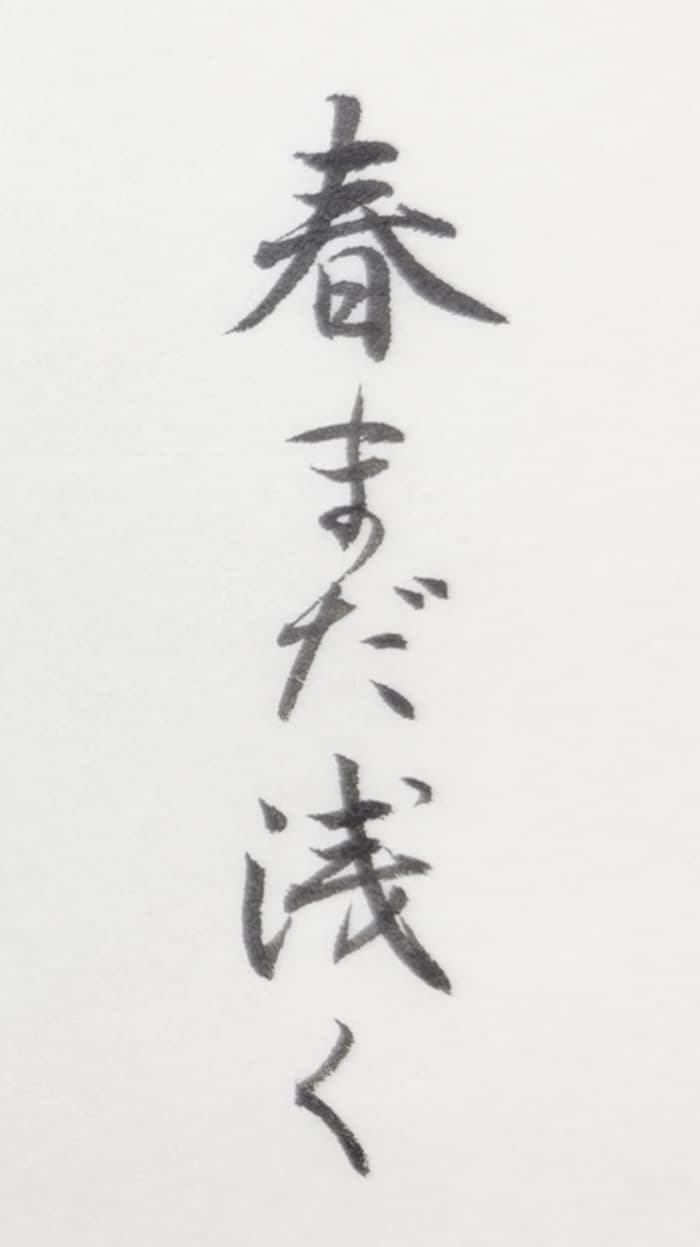 春まだ浅く